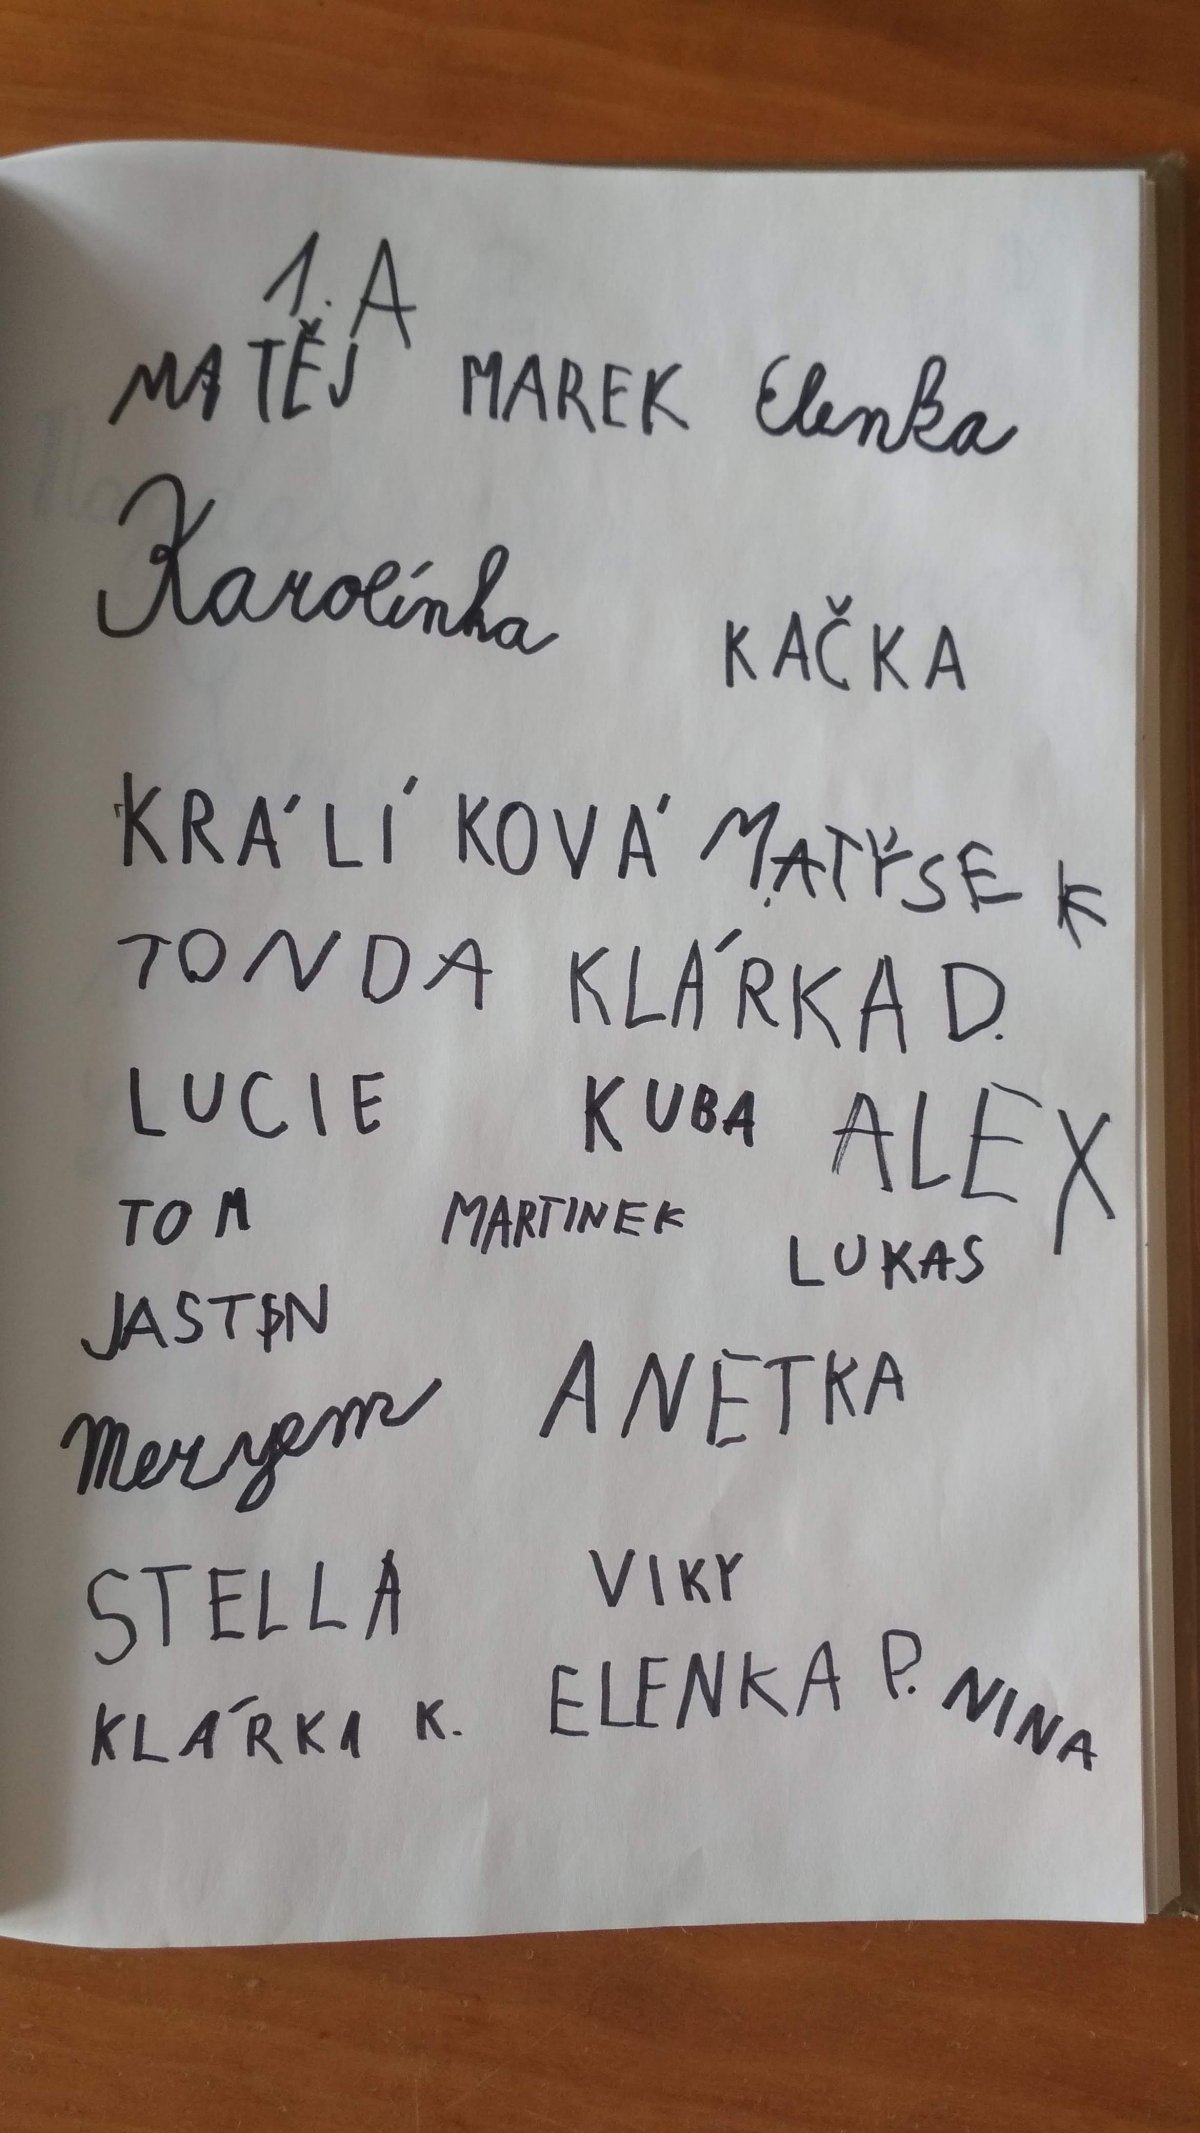 1. A
MATĚJ MAREK Elenka
Karolínka KAČKA
KRÁLÍKOVÁ MATÝSEK
TONDA KLÁRKA D.
LUCIE KUBA ALEX
TOM MARTINEK LUKAS
JASTIN
Meryem ANETKA
STELLA VIKY
KLÁRKA K. ELENKA P. NINA